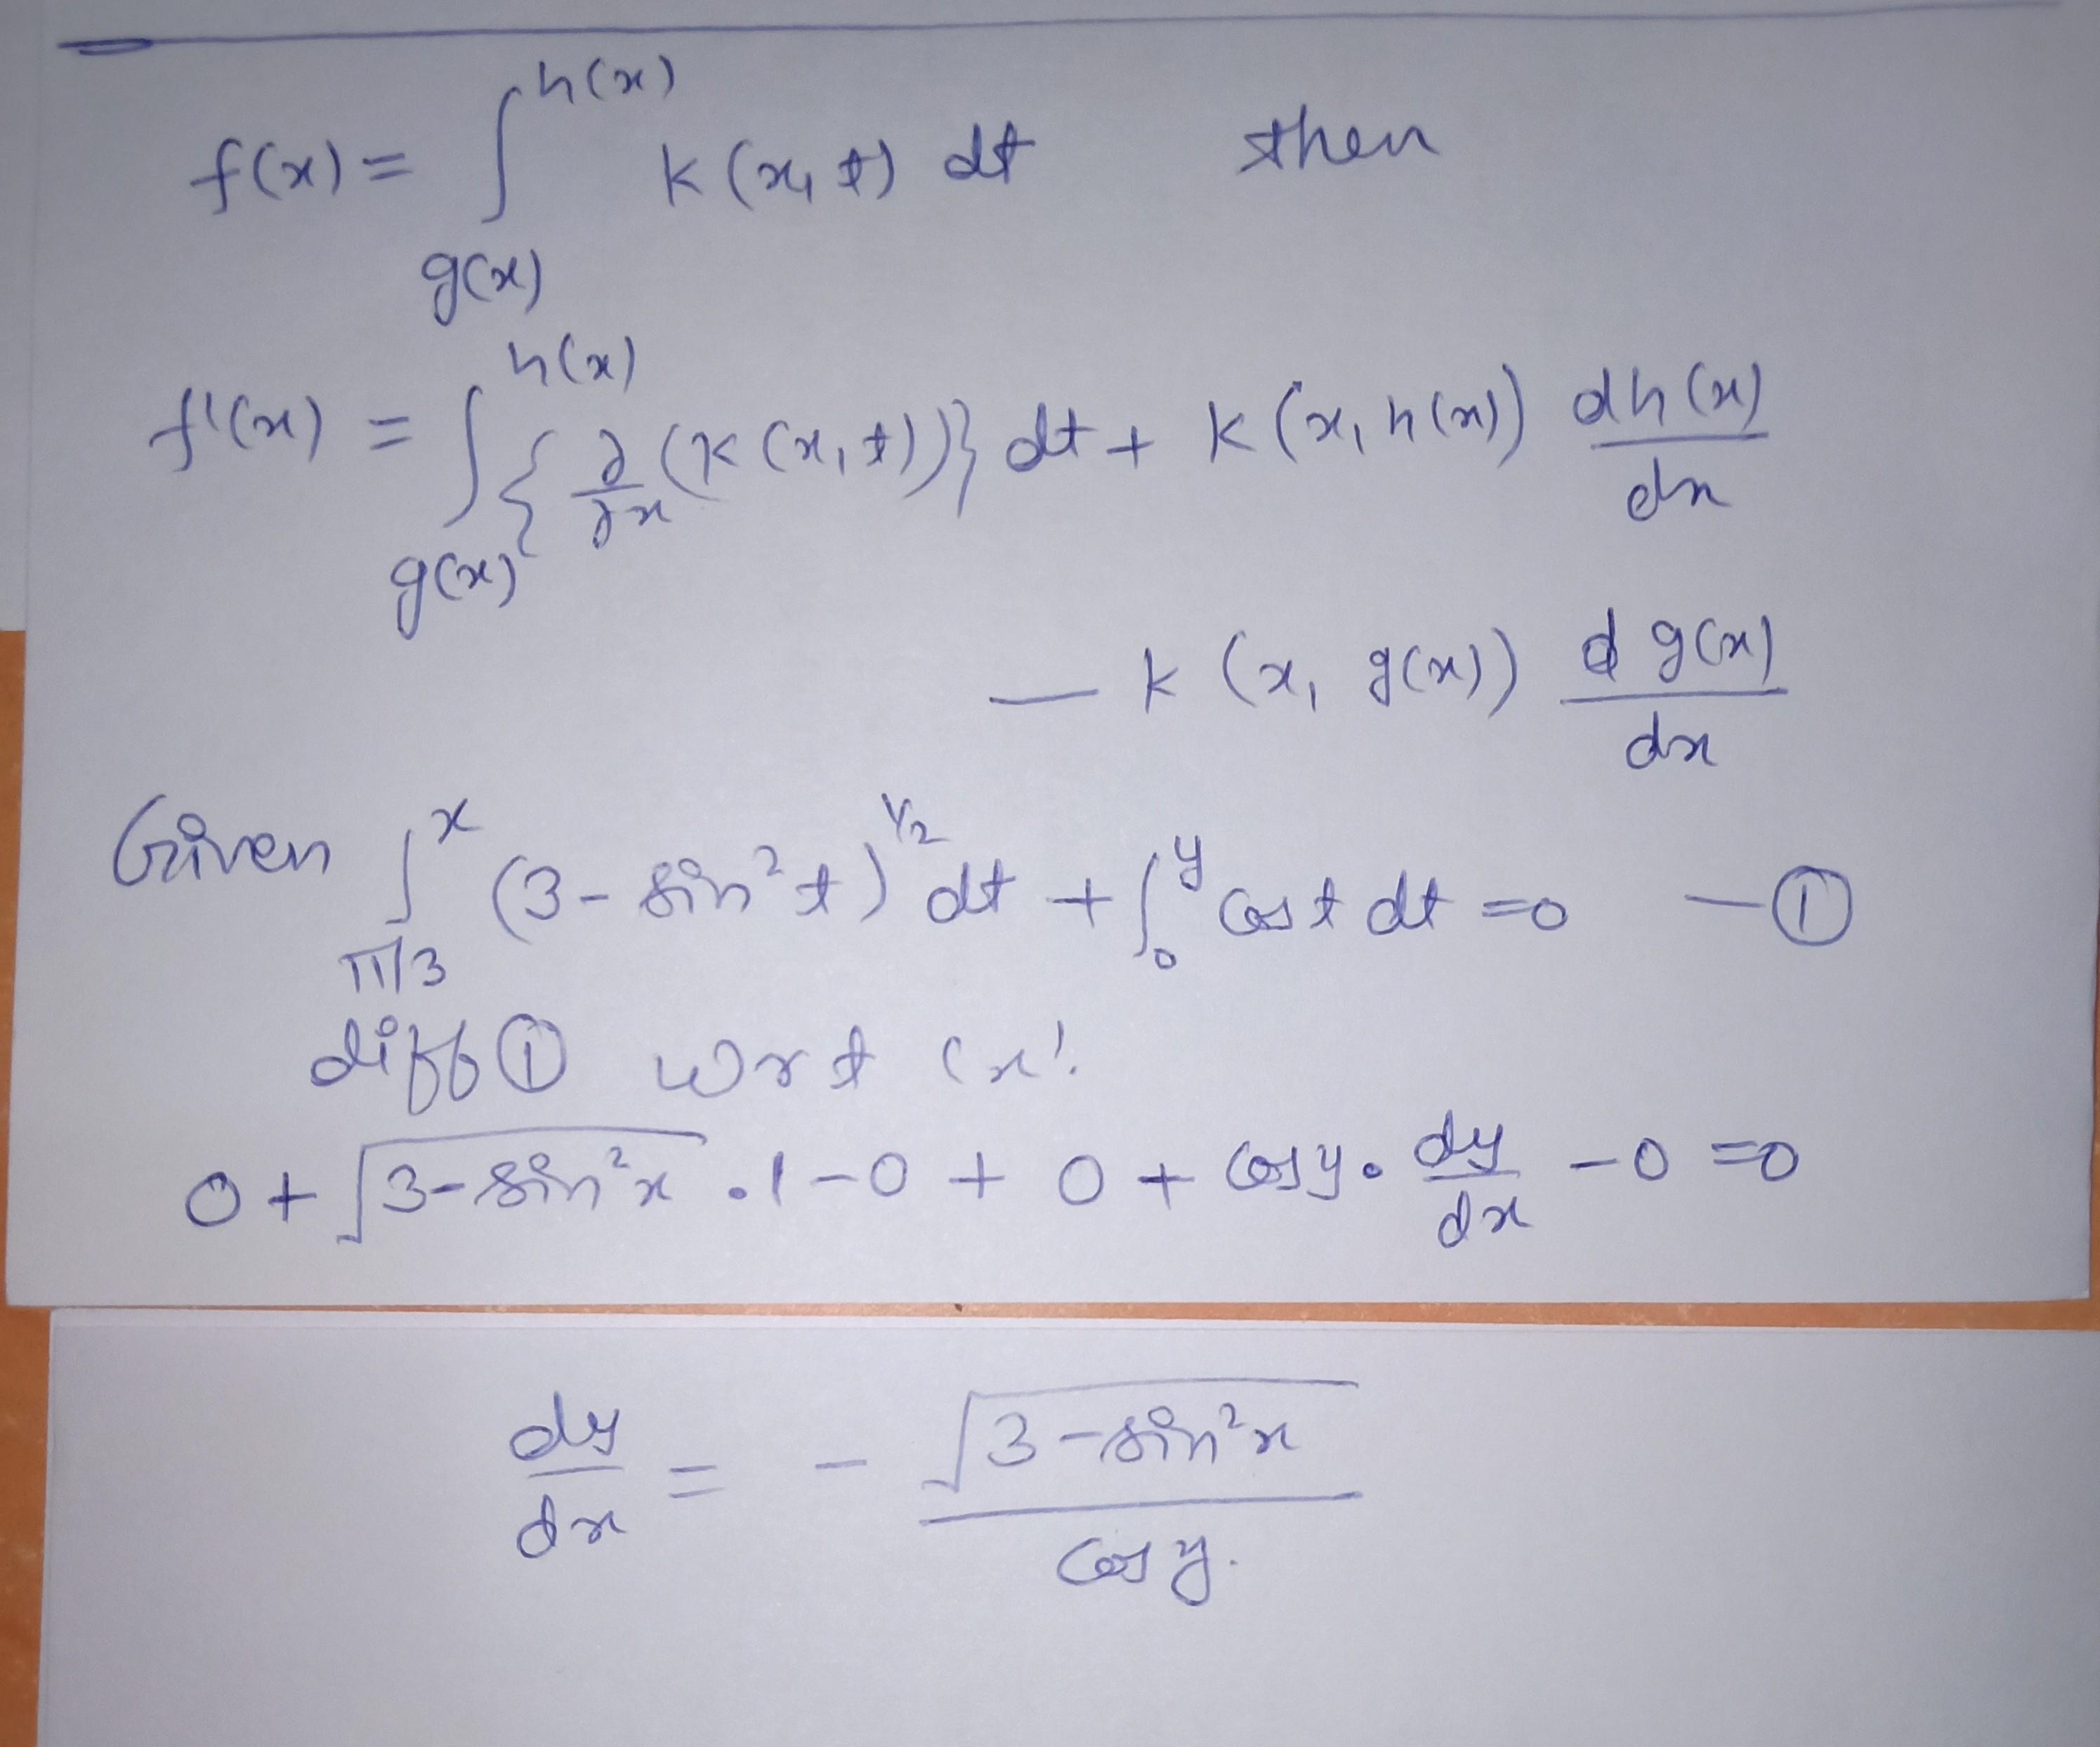 f(x) = ∫_{g(x)}^{h(x)} K(x, t) dt then
f'(x) = ∫_{g(x)}^{h(x)} {∂/∂x (K(x, t))} dt + K(x, h(x)) dh(x)/dx
— K(x, g(x)) d g(x)/dx
Given ∫_{π/3}^{x} (3 - sin² t)^{1/2} dt + ∫_0^y cos t dt = 0 — ①
diff ① wrt 'x'.
0 + √(3 - sin² x) · 1 - 0 + 0 + cos y · dy/dx - 0 = 0
dy/dx = - √(3 - sin² x) / cos y.